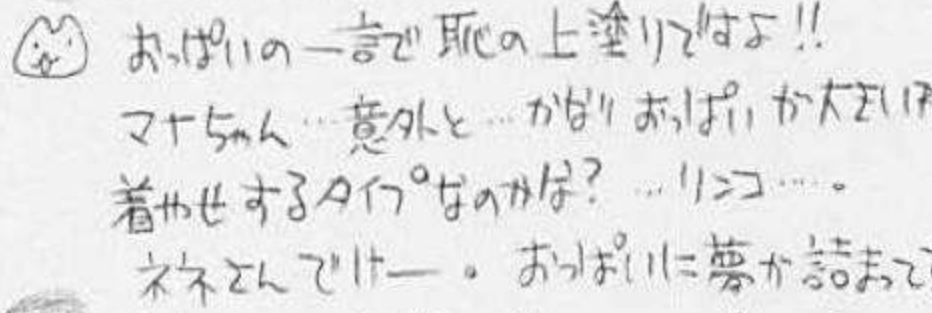 おっぱいの一言で恥の上塗りですよ!!
マナちゃん…意外と…かなりおっぱいが大きい
着やせするタイプなのかな?…リンコ…。
ネネさんでけー。おっぱいに夢が詰まって